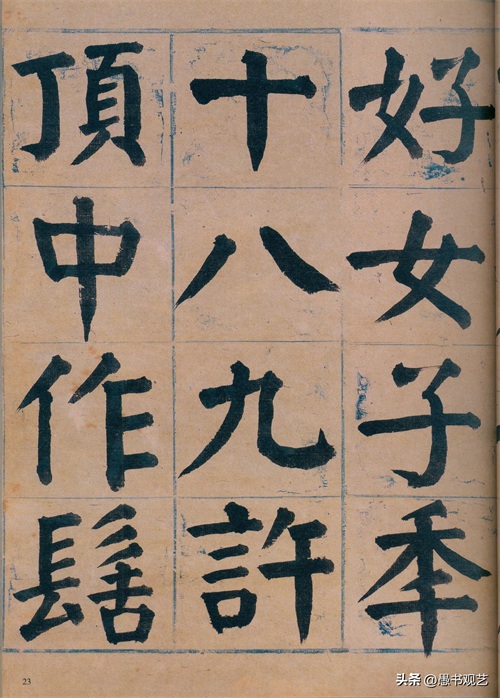 好女子秊
十八九許
頂中作髻
23
头条 @愚书观艺